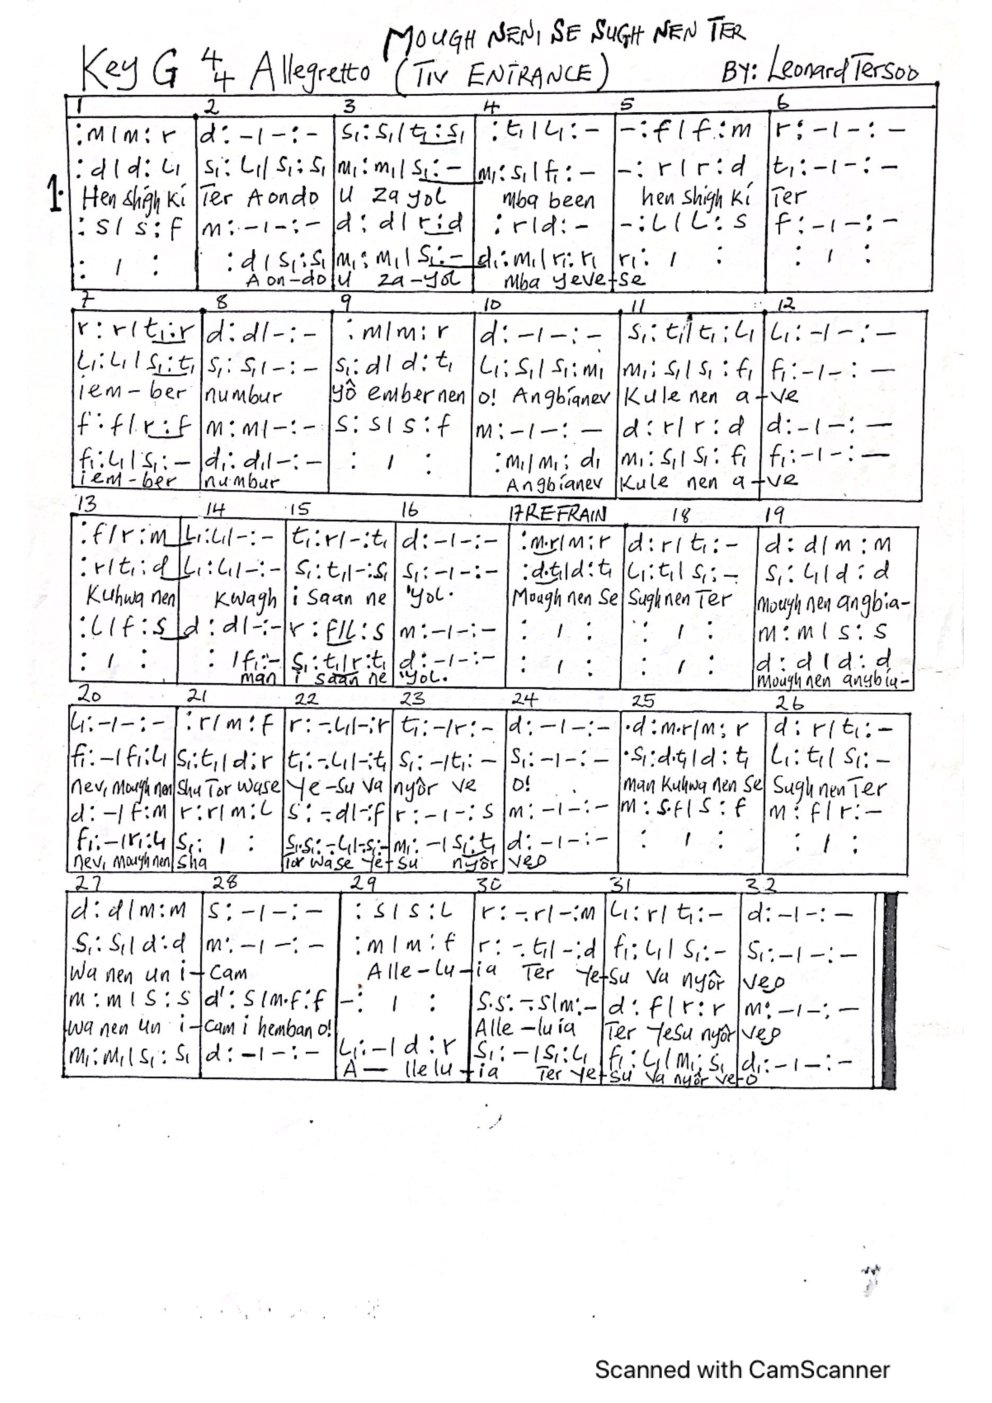 MOUGH NENI SE SUGH NEN TER
Key G 4/4 Allegretto (TIV ENTRANCE) BY: Leonard Tersoo
1 2 3 4 5 6
:m/m:r | d:-/-:- | s₁:s₁/t₁:s₁ | :t₁/l₁:- | -:f/f:m | r:-/-:-
:d/d:l₁ | s₁:l₁/s₁:s₁ | m₁:m₁/s₁:- | m₁:s₁/f₁:- | -:r/r:d | t₁:-/-:-
1. Hen shigh ki | Ter Aondo | U za yol | mba been | hen shigh ki | Ter
:s/s:f | m:-/-:- | d:d/r:d | :r/d:- | -:l/l:s | f:-/-:-
: / : | :d/s₁:s₁ | m₁:m₁/s₁:- | d₁:m₁/r₁:r₁ | r₁: / : | : / :
Aon-do | U za-yol | mba yeve-se
7 8 9 10 11 12
r:r/t₁:r | d:d/-:- | :m/m:r | d:-/-:- | s₁:t₁/t₁:l₁ | l₁:-/-:-
l₁:l₁/s₁:t₁ | s₁:s₁/-:- | s₁:d/d:t₁ | l₁:s₁/s₁:m₁ | m₁:s₁/s₁:f₁ | f₁:-/-:-
iem-ber | numbur | yô ember nen | o! Angbianev | Kule nen a-ve
f:f/r:f | m:m/-:- | s:s/s:f | m:-/-:- | d:r/r:d | d:-/-:-
f₁:l₁/s₁:- | d₁:d₁/-:- | : / : | :m₁/m₁:d₁ | m₁:s₁/s₁:f₁ | f₁:-/-:-
iem-ber | numbur | Angbianev | Kule nen a-ve
13 14 15 16 17 REFRAIN 18 19
:f/r:m | l₁:l₁/-:- | t₁:r/-:t₁ | d:-/-:- | :m.r/m:r | d:r/t₁:- | d:d/m:m
:r/t₁:d | l₁:l₁/-:- | s₁:t₁/-:s₁ | s₁:-/-:- | :d.t₁/d:t₁ | l₁:t₁/s₁:- | s₁:l₁/d:d
Kuhwa nen | Kwagh | i saan ne | 'yol. | Mough nen Se | Sugh nen Ter | Mough nen angbia-
:l/f:s | d:d/-:- | r:f/l:s | m:-/-:- | : / : | : / : | m:m/s:s
: / : | : /f₁:- | s₁:t₁/r:t₁ | d:-/-:- | : / : | : / : | d:d/d:d
man | i saan ne | 'yol. | Mough nen angbia-
20 21 22 23 24 25 26
l₁:-/-:- | :r/m:f | r:-.l₁/-:r | t₁:-/r:- | d:-/-:- | .d:m.r/m:r | d:r/t₁:-
f₁:-/f₁:l₁ | s₁:t₁/d:r | t₁:-.l₁/-:t₁ | s₁:-/t₁:- | s₁:-/-:- | .s₁:d.t₁/d:t₁ | l₁:t₁/s₁:-
nev, Mough nen | Sha Tor wase | Ye-su va | nyôr ve | O! | man Kuhwa nen Se | Sugh nen Ter
d:-/f:m | r:r/m:l | s:-.d/-:f | r:-/-:s | m:-/-:- | m:s.f/s:f | m:f/r:-
f₁:-/r₁:l₁ | s₁: / : | s₁.s₁:-.l₁/-.s₁:- | m₁:-/s₁:t₁ | d:-/-:- | : / : | : / :
nev, Mough nen | Sha | Tor wase Ye-su nyôr | veo
27 28 29 30 31 32
d:d/m:m | s:-/-:- | :s/s:l | r:-.r/-:m | l₁:r/t₁:- | d:-/-:-
s₁:s₁/d:d | m:-/-:- | :m/m:f | r:-.t₁/-:d | f₁:l₁/s₁:- | s₁:-/-:-
Wa nen un i-Cam | Alle-lu-ia Ter Ye-su va nyôr | veo
m:m/s:s | d':s/m.f:f | -: / : | s.s:-.s/m:- | d:f/r:r | m:-/-:-
wa nen un i-Cam i hemban o! | Alle-luia | Ter Yesu nyôr | veo
m₁:m₁/s₁:s₁ | d:-/-:- | l₁:-/d:r | s₁:-/s₁:l₁ | f₁:l₁/m₁:s₁ | d₁:-/-:-
A— llelu-ia Ter Ye-su va nyôr ve-o
Scanned with CamScanner